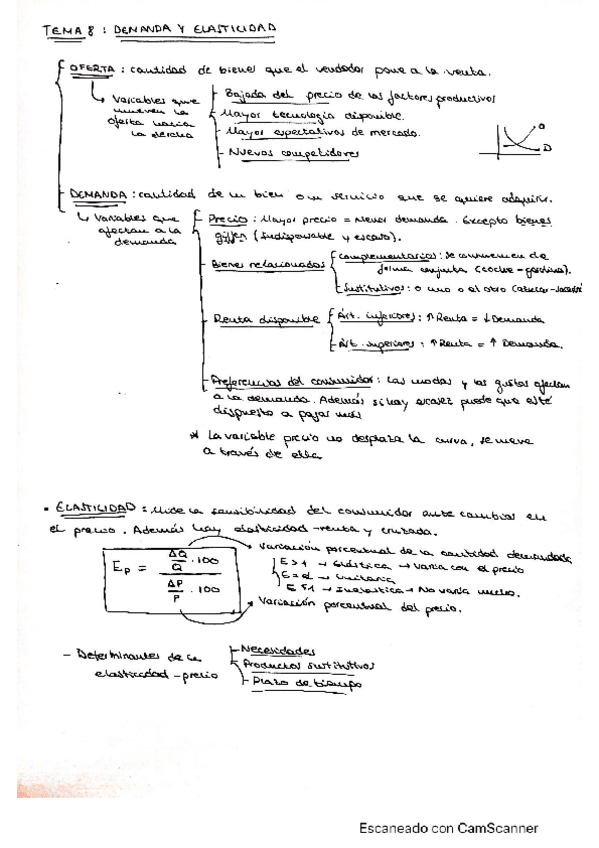 TEMA 8 : DEMANDA Y ELASTICIDAD
OFERTA : cantidad de bienes que el vendedor pone a la venta.
Variables que mueven la oferta hacia la derecha
Bajada del precio de los factores productivos
Mayor tecnología disponible.
Mayor espectativas de mercado.
Nuevos competidores
O
D
DEMANDA : cantidad de un bien o un servicio que se quiere adquirir.
Variables que afectan a la demanda
Precio : Mayor precio = Menor demanda. Excepto bienes
giffen (indispensable y escaso).
Bienes relacionados
Complementarios : se consumen de
forma conjunta (coche - gasolina).
Sustitutivos : o uno o el otro (azucar -
Renta disponible
Árt. inferiores : ↑ Renta = ↓ Demanda
Árt. superiores : ↑ Renta = ↑ Demanda.
Preferencias del consumidor : Las modas y los gustos afectan
a la demanda. Además si hay escasez puede que esté
dispuesto a pagar más
* La variable precio no desplaza la curva, se mueve
a través de ella
• ELASTICIDAD : Mide la sensibilidad del consumidor ante cambios en
el precio. Además hay elasticidad - renta y cruzada.
Variación porcentual de la cantidad demandada
Ep = ΔQ/Q · 100 / ΔP/P · 100
E > 1 → Elástica → varía con el precio
E = 1 → Unitaria
→ Inelástica → No varía mucho.
Variación porcentual del precio.
- Determinantes de la elasticidad - precio
Necesidades
Productos sustitutivos
Plazo de tiempo
Escaneado con CamScanner